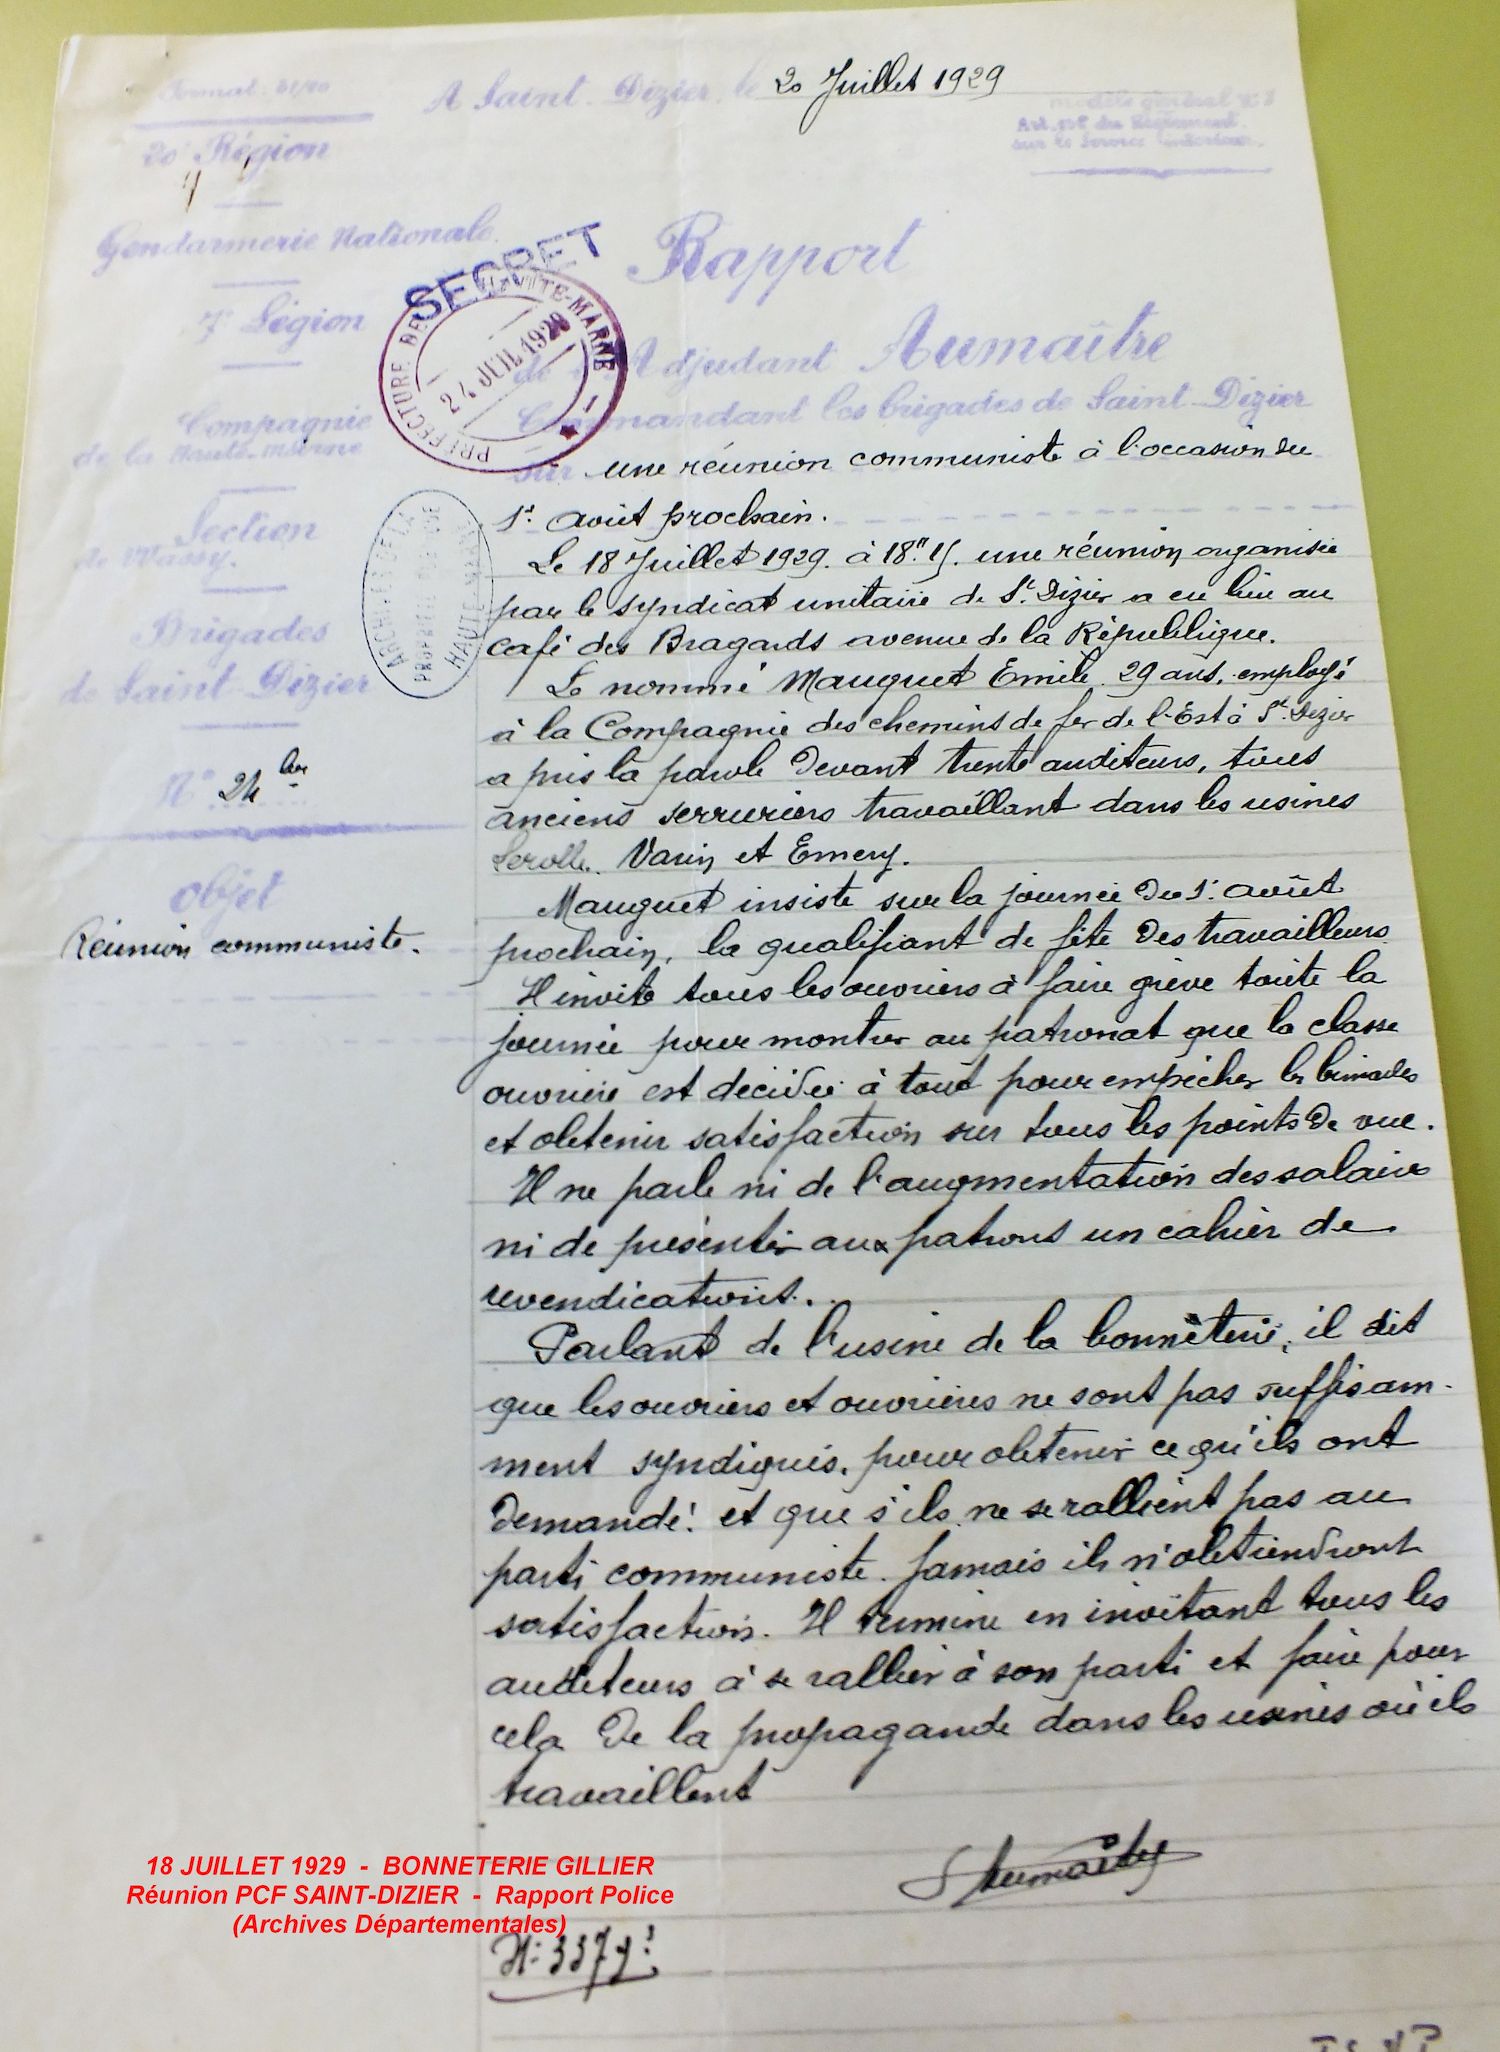 Format 21/30
20e Région
Gendarmerie Nationale.
7e Légion
Compagnie
de la Haute-Marne
Section
de Wassy.
Brigades
de Saint-Dizier
N° 24 bis
Objet
Réunion communiste.
A Saint-Dizier, le 20 Juillet 1929
modèle général N°
Art. du Règlement
sur le Service intérieur.
SECRET
PREFECTURE DE LA HAUTE-MARNE
24 JUIL 1929
ARCHIVES DE LA
PROPRIÉTÉ PUBLIQUE
HAUTE-MARNE
Rapport
de l'Adjudant Aumaître
Commandant les brigades de Saint-Dizier
sur une réunion communiste à l'occasion du
1er août prochain.
Le 18 Juillet 1929. à 18h 15. une réunion organisée
par le syndicat unitaire de St. Dizier a eu lieu au
café des Bragards avenue de la République.
Le nommé Mauguet Emile. 29 ans, employé
à la Compagnie des chemins de fer de l'Est à St. Dizier
a pris la parole devant trente auditeurs, tous
anciens serruriers travaillant dans les usines
Lerolle. Varin et Emery.
Mauguet insiste sur la journée du 1er août
prochain, la qualifiant de fête des travailleurs
Il invite tous les ouvriers à faire grève toute la
journée pour montrer au patronat que la classe
ouvrière est décidée à tout pour empêcher les brimades
et obtenir satisfaction sur tous les points de vue.
Il ne parle ni de l'augmentation des salaires
ni de présenter aux patrons un cahier de
revendications.
Parlant de l'usine de la bonnèterie, il dit
que les ouvriers et ouvrières ne sont pas suffisam-
ment syndiqués, pour obtenir ce qu'ils ont
demandé! et que s'ils ne se rallient pas au
parti communiste. Jamais ils n'obtiendront
satisfaction. Il termine en invitant tous les
auditeurs à se rallier à son parti et faire pour
cela de la propagande dans les usines où ils
travaillent
Aumaître
18 JUILLET 1929 - BONNETERIE GILLIER
Réunion PCF SAINT-DIZIER - Rapport Police
(Archives Départementales)